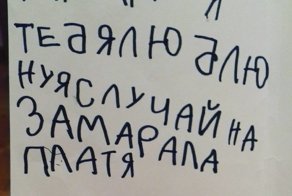 ТЕбЯЛЮ бЛЮ
НУЯСЛУЧАЙ НА
ЗАМАРАЛА
ПЛАТЯ